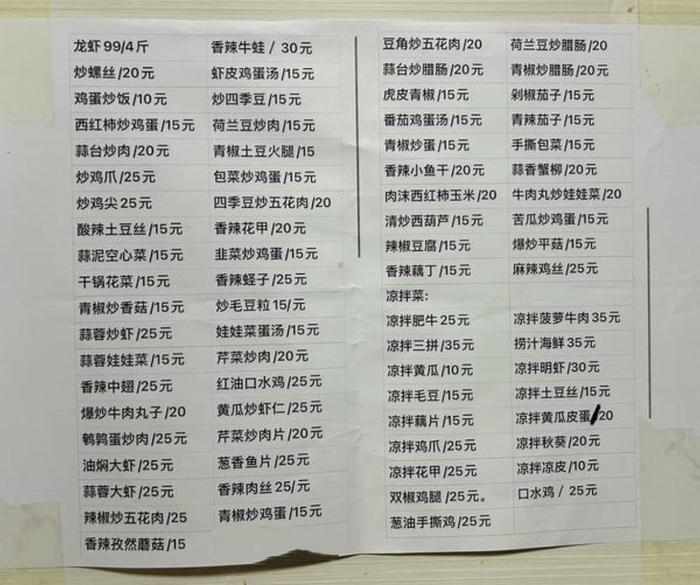 龙虾 99/4斤
香辣牛蛙 / 30元
炒螺丝/20元
虾皮鸡蛋汤/15元
鸡蛋炒饭/10元
炒四季豆/15元
西红柿炒鸡蛋/15元
荷兰豆炒肉/15元
蒜台炒肉/20元
青椒土豆火腿/15
炒鸡爪/25元
包菜炒鸡蛋/15元
炒鸡尖25元
四季豆炒五花肉/20
酸辣土豆丝/15元
香辣花甲/20元
蒜泥空心菜/15元
韭菜炒鸡蛋/15元
干锅花菜/15元
香辣蛏子/25元
青椒炒香菇/15元
炒毛豆粒15/元
蒜蓉炒虾/25元
娃娃菜蛋汤/15元
蒜蓉娃娃菜/15元
芹菜炒肉/20元
香辣中翅/25元
红油口水鸡/25元
爆炒牛肉丸子/20
黄瓜炒虾仁/25元
鹌鹑蛋炒肉/25元
芹菜炒肉片/20元
油焖大虾/25元
葱香鱼片/25元
蒜蓉大虾/25元
香辣肉丝25/元
辣椒炒五花肉/25
青椒炒鸡蛋/15元
香辣孜然蘑菇/15
豆角炒五花肉/20
荷兰豆炒腊肠/20
蒜台炒腊肠/20元
青椒炒腊肠/20元
虎皮青椒/15元
剁椒茄子/15元
番茄鸡蛋汤/15元
青辣茄子/15元
青椒炒蛋/15元
手撕包菜/15元
香辣小鱼干/20元
蒜香蟹柳/20元
肉沫西红柿玉米/20
牛肉丸炒娃娃菜/20
清炒西葫芦/15元
苦瓜炒鸡蛋/15元
辣椒豆腐/15元
爆炒平菇/15元
香辣藕丁/15元
麻辣鸡丝/25元
凉拌菜:
凉拌肥牛25元
凉拌菠萝牛肉35元
凉拌三拼/35元
捞汁海鲜35元
凉拌黄瓜/10元
凉拌明虾/30元
凉拌毛豆/15元
凉拌土豆丝/15元
凉拌藕片/15元
凉拌黄瓜皮蛋/20
凉拌鸡爪/25元
凉拌秋葵/20元
凉拌花甲/25元
凉拌凉皮/10元
双椒鸡腿 /25元。
口水鸡 / 25元
葱油手撕鸡/25元